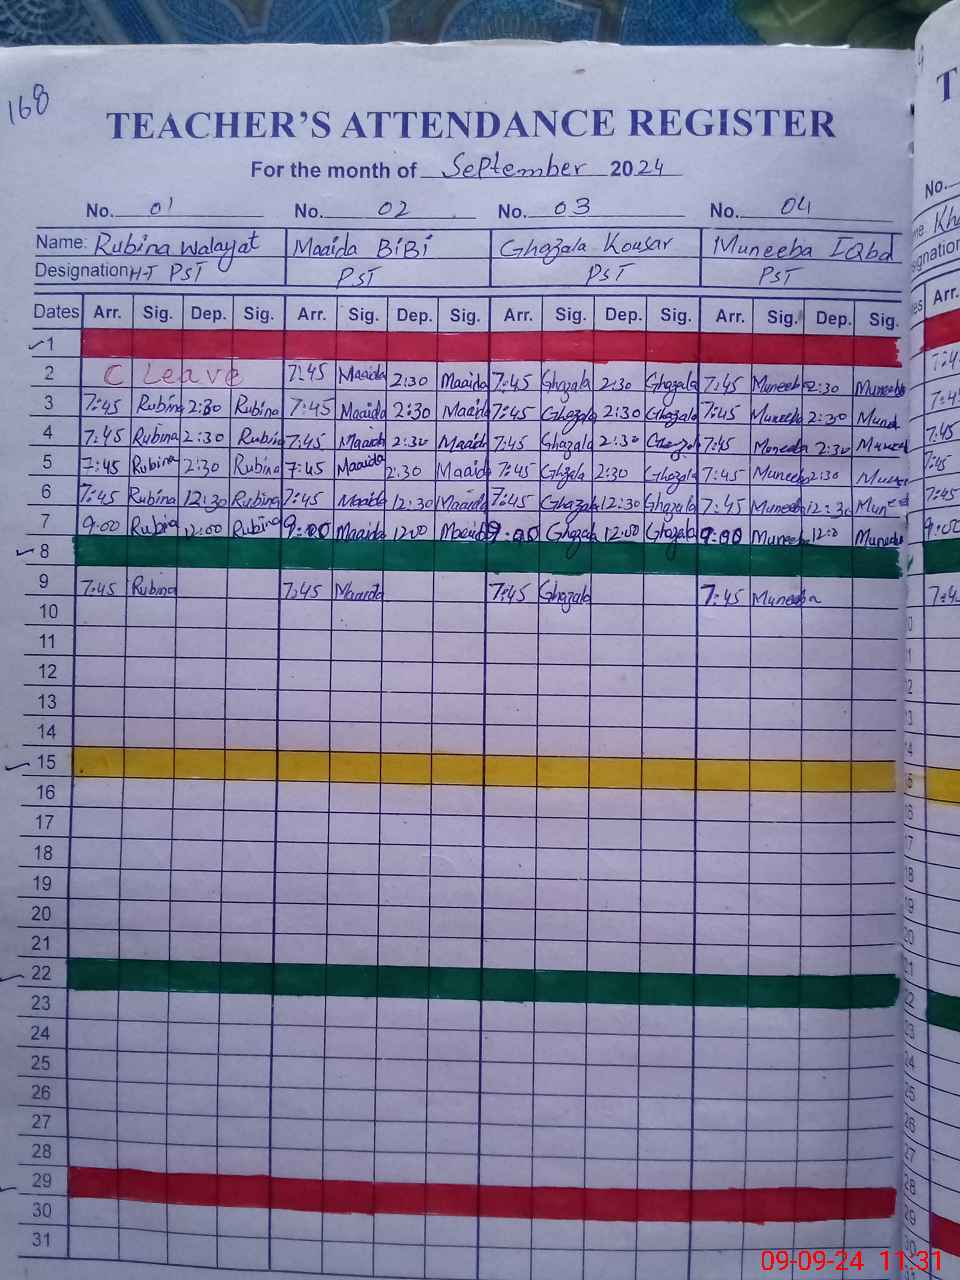 168
TEACHER'S ATTENDANCE REGISTER
For the month of September 2024
No. 01 No. 02 No. 03 No. 04
Name: Rubina Walayat Maaida BiBi Ghazala Kousar Muneeba IQbal
Designation H-T PST PST PST PST
Dates Arr. Sig. Dep. Sig. Arr. Sig. Dep. Sig. Arr. Sig. Dep. Sig. Arr. Sig. Dep. Sig.
1
2 C Leave 7:45 Maaida 2:30 Maaida 7:45 Ghazala 2:30 Ghazala 7:45 Muneeba 2:30 Muneeba
3 7:45 Rubina 2:30 Rubina 7:45 Maaida 2:30 Maaida 7:45 Ghazala 2:30 Ghazala 7:45 Muneeba 2:30
4 7:45 Rubina 2:30 Rubina 7:45 Maaida 2:30 Maaida 7:45 Ghazala 2:30 7:45 Muneeba 2:30
5 7:45 Rubina 2:30 Rubina 7:45 Maaida 2:30 Maaida 7:45 Ghazala 2:30 Ghazala 7:45 Muneeba 2:30
6 7:45 Rubina 12:30 Rubina 7:45 Maaida 12:30 Maaida 7:45 Ghazala 12:30 Ghazala 7:45 Muneeba 12:30
7 9:00 Rubina 12:00 Rubina 9:00 Maaida 12:00 Maaida 9:00 Ghazala 12:00 Ghazala 9:00 Muneeba 12:0 Muneeba
8
9 7:45 Rubina 7:45 Maaida 7:45 Ghazala 7:45 Muneeba
10
11
12
13
14
15
16
17
18
19
20
21
22
23
24
25
26
27
28
29
30
31
09-09-24 11:31